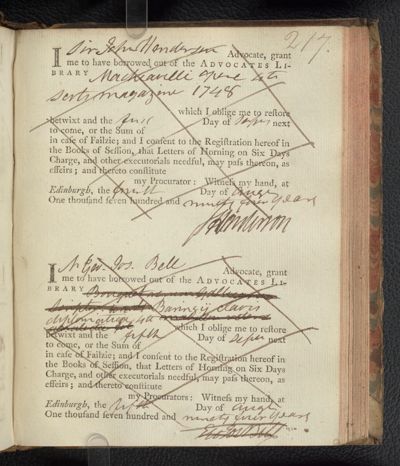 217.
I Sir John Henderson Advocate, grant
me to have borrowed out of the ADVOCATES LI-
BRARY Machiavelli opere 4to
Scots magazine 1748
which I oblige me to restore
betwixt and the first Day of Sepr next
to come, or the Sum of
in case of Failzie; and I consent to the Registration hereof in
the Books of Session, that Letters of Horning on Six Days
Charge, and other executorials needful, may pass thereon, as
effeirs; and thereto constitute
my Procurator: Witness my hand, at
Edinburgh, the Day of Augt
One thousand seven hundred and ninety four years
J Henderson
I Mr Geo. Jos. Bell Advocate, grant
me to have borrowed out of the ADVOCATES LI-
BRARY
Barring's clavis
diplomatica 4to
which I oblige me to restore
betwixt and the fifth Day of Sepr next
to come, or the Sum of
in case of Failzie; and I consent to the Registration hereof in
the Books of Session, that Letters of Horning on Six Days
Charge, and other executorials needful, may pass thereon, as
effeirs; and thereto constitute
my Procurators: Witness my hand, at
Edinburgh, the fifth Day of Augt
One thousand seven hundred and ninety four years
Geo Jos Bell